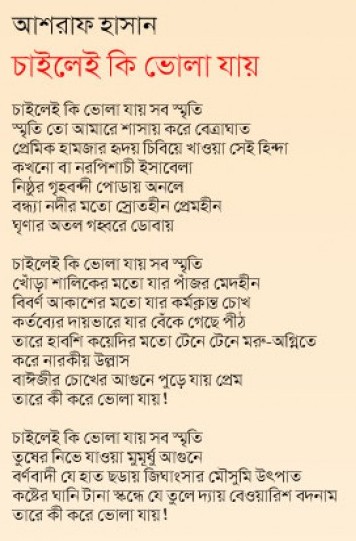 আশরাফ হাসান
চাইলেই কি ভোলা যায়
চাইলেই কি ভোলা যায় সব স্মৃতি
স্মৃতি তো আমারে শাসায় করে বেত্রাঘাত
প্রেমিক হামজার হৃদয় চিবিয়ে খাওয়া সেই হিন্দা
কখনো বা নরপিশাচী ইসাবেলা
নিষ্ঠুর গৃহবন্দী পোড়ায় অনলে
বন্ধ্যা নদীর মতো স্রোতহীন প্রেমহীন
ঘৃণার অতল গহ্বরে ডোবায়
চাইলেই কি ভোলা যায় সব স্মৃতি
খোঁড়া শালিকের মতো যার পাঁজর মেদহীন
বিবর্ণ আকাশের মতো যার কর্মক্লান্ত চোখ
কর্তব্যের দায়ভারে যার বেঁকে গেছে পীঠ
তারে হাবশি কয়েদির মতো টেনে টেনে মরু-অগ্নিতে
করে নারকীয় উল্লাস
বাঈজীর চোখের আগুনে পুড়ে যায় প্রেম
তারে কী করে ভোলা যায়!
চাইলেই কি ভোলা যায় সব স্মৃতি
তুষের নিভে যাওয়া মুমূর্ষু আগুনে
বর্ণবাদী যে হাত ছড়ায় জিঘাংসার মৌসুমি উৎপাত
কষ্টের ঘানি টানা স্কন্ধে যে তুলে দ্যায় বেওয়ারিশ বদনাম
তারে কী করে ভোলা যায়!